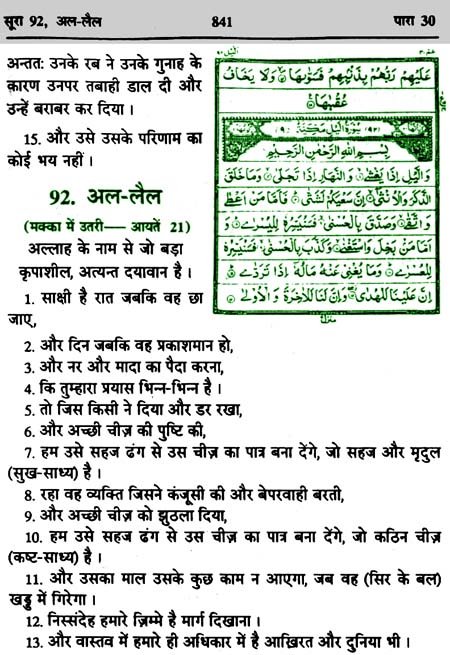 सूरा 92, अल-लैल
841
पारा 30
अन्ततः उनके रब ने उनके गुनाह के
कारण उनपर तबाही डाल दी और
उन्हें बराबर कर दिया ।
15. और उसे उसके परिणाम का
कोई भय नहीं ।
عَلَيْهِمْ رَبُّهُمْ بِذَنْۢبِهِمْ فَسَوّٰىهَا وَلَا يَخَافُ
عُقْبٰهَا
سُوْرَةُ الَّيْلِ مَكِّيَّةٌ
بِسْمِ اللهِ الرَّحْمٰنِ الرَّحِيْمِ
وَالَّيْلِ اِذَا يَغْشٰى وَالنَّهَارِ اِذَا تَجَلّٰى وَمَا خَلَقَ
الذَّكَرَ وَالْاُنْثٰى اِنَّ سَعْيَكُمْ لَشَتّٰى فَاَمَّا مَنْ اَعْطٰى
وَاتَّقٰى وَصَدَّقَ بِالْحُسْنٰى فَسَنُيَسِّرُهٗ لِلْيُسْرٰى وَ
اَمَّا مَنْۢ بَخِلَ وَاسْتَغْنٰى وَكَذَّبَ بِالْحُسْنٰى فَسَنُيَسِّرُهٗ
لِلْعُسْرٰى وَمَا يُغْنِيْ عَنْهُ مَالُهٗٓ اِذَا تَرَدّٰى
اِنَّ عَلَيْنَا لَلْهُدٰى وَاِنَّ لَنَا لَلْاٰخِرَةَ وَالْاُوْلٰى
92. अल-लैल
(मक्का में उतरी— आयतें 21)
अल्लाह के नाम से जो बड़ा
कृपाशील, अत्यन्त दयावान है ।
1. साक्षी है रात जबकि वह छा
जाए,
2. और दिन जबकि वह प्रकाशमान हो,
3. और नर और मादा का पैदा करना,
4. कि तुम्हारा प्रयास भिन्न-भिन्न है ।
5. तो जिस किसी ने दिया और डर रखा,
6. और अच्छी चीज़ की पुष्टि की,
7. हम उसे सहज ढंग से उस चीज़ का पात्र बना देंगे, जो सहज और मृदुल
(सुख-साध्य) है ।
8. रहा वह व्यक्ति जिसने कंजूसी की और बेपरवाही बरती,
9. और अच्छी चीज़ को झुठला दिया,
10. हम उसे सहज ढंग से उस चीज़ का पात्र बना देंगे, जो कठिन चीज़
(कष्ट-साध्य) है ।
11. और उसका माल उसके कुछ काम न आएगा, जब वह (सिर के बल)
खड्ड में गिरेगा ।
12. निस्संदेह हमारे ज़िम्मे है मार्ग दिखाना ।
13. और वास्तव में हमारे ही अधिकार में है आख़िरत और दुनिया भी ।